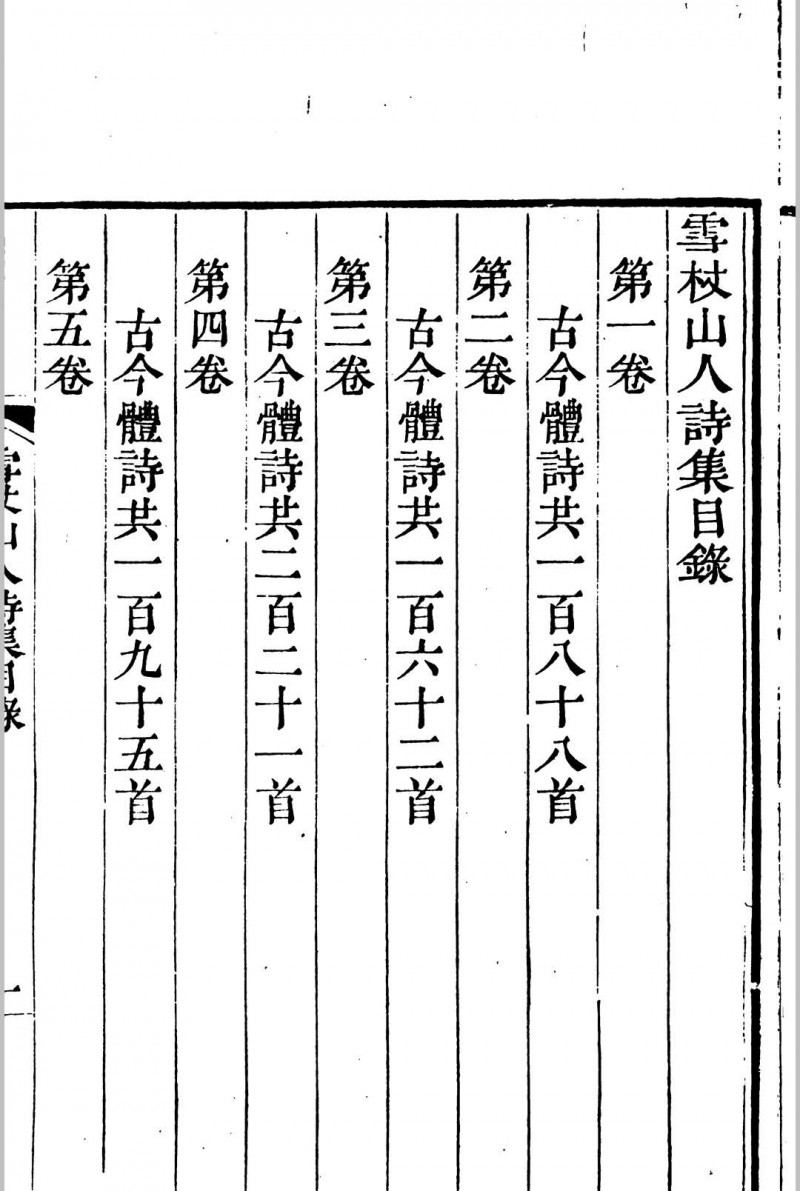 雪杖山人詩集目錄
第一卷
古今體詩共一百八十八首
第二卷
古今體詩共一百六十二首
第三卷
古今體詩共二百二十一首
第四卷
古今體詩共一百九十五首
第五卷
雪杖山人詩集目錄
一